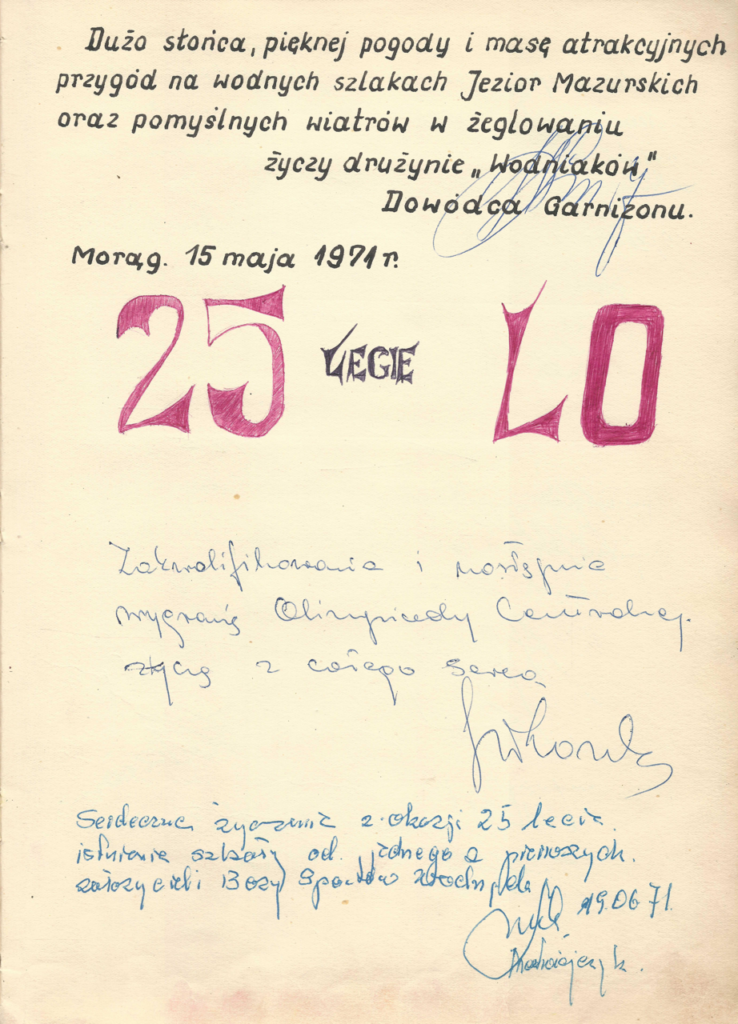 Dużo słońca, pięknej pogody i masę atrakcyjnych
przygód na wodnych szlakach Jezior Mazurskich
oraz pomyślnych wiatrów w żeglowaniu
życzy drużynie „Wodniaków"
Dowódca Garnizonu.
Morąg. 15 maja 1971 r.
25 LECIE LO
Zakwalifikowania i następnie
wygranię Olimpiady Centralnej.
życzę z całego serca
Serdeczne życzenia z okazji 25 lecia.
istnienia szkoły od jednego z pierwszych.
założycieli Bazy Sportów Wodnych
19.06 71.